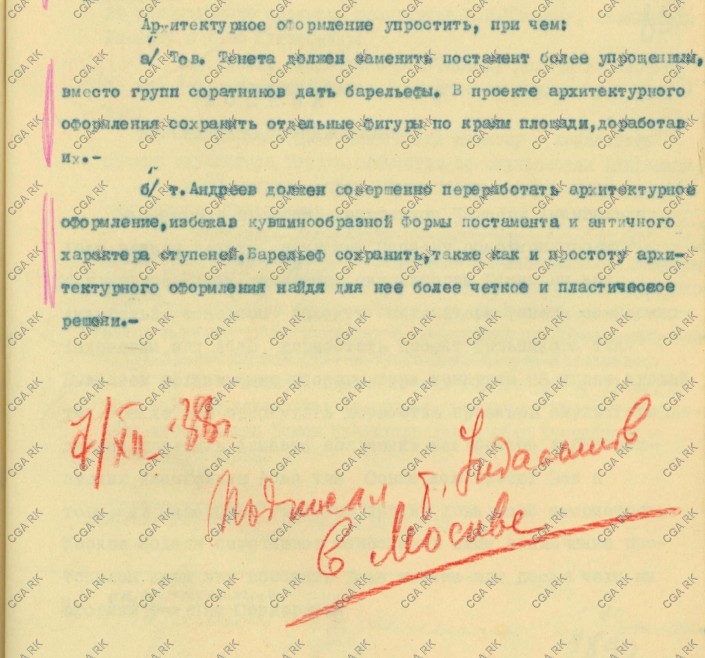 Архитектурное оформление упростить, при чем:
а/ Тов. Танета должен заменить постамент более упрощенным,
вместо групп соратников дать барельефы. В проекте архитектурного
оформления сохранить отдельные фигуры по краям площади,доработав
их.-
б/ т.Андреев должен совершенно переработать архитектурное
оформление,избежав кувшинообразной формы постамента и античного
характера ступеней.Барельеф сохранить,также как и простоту архи-
тектурного оформления найдя для нее более четкое и пластическое
решени.-
7/XII-38г.
Подписал т.
в Москве